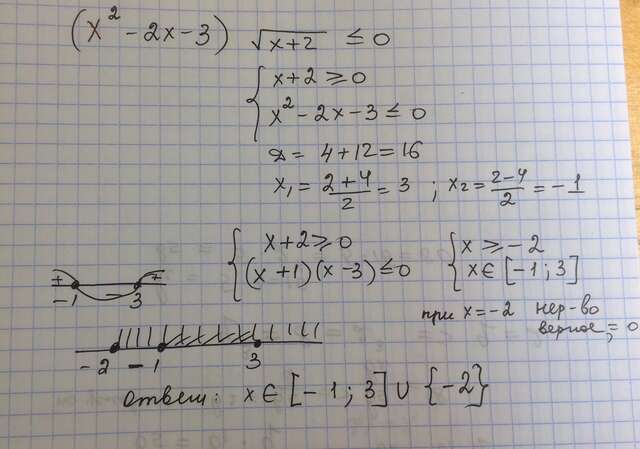 (x² - 2x - 3) √(x+2) ≤ 0
{ x+2 ≥ 0
x² - 2x - 3 ≤ 0
D = 4 + 12 = 16
x₁ = (2+4)/2 = 3 ; x₂ = (2-4)/2 = -1
{ x+2 ≥ 0
(x+1)(x-3) ≤ 0
{ x ≥ -2
x ∈ [-1; 3]
+ - +
-1 3
при x = -2 нер-во
верное, = 0
-2 -1 3
ответ: x ∈ [-1; 3] ∪ {-2}